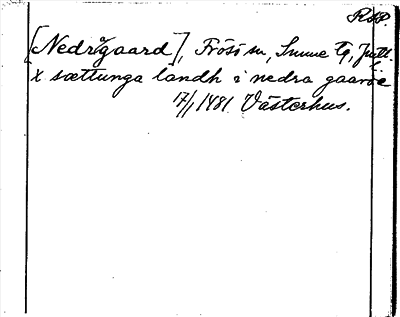 RAP.
[Nedrgaard], Frösö sn, Sunne tg, Jmtl.
X sættunga landh i nedra gaarde
17/1 1481 Västerhus.